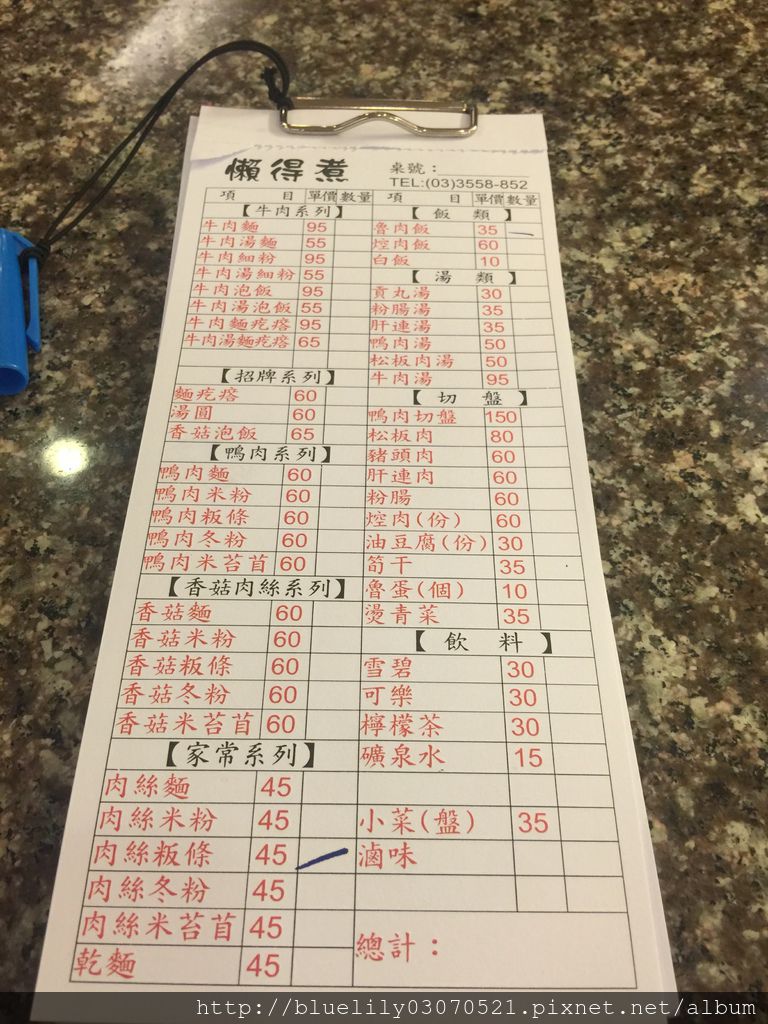 懶得煮
桌號：
TEL:(03)3558-852
項 目 單價 數量
【牛肉系列】
牛肉麵 95
牛肉湯麵 55
牛肉細粉 95
牛肉湯細粉 55
牛肉泡飯 95
牛肉湯泡飯 55
牛肉麵疙瘩 95
牛肉湯麵疙瘩 65
【招牌系列】
麵疙瘩 60
湯圓 60
香菇泡飯 65
【鴨肉系列】
鴨肉麵 60
鴨肉米粉 60
鴨肉粄條 60
鴨肉冬粉 60
鴨肉米苔苜 60
【香菇肉絲系列】
香菇麵 60
香菇米粉 60
香菇粄條 60
香菇冬粉 60
香菇米苔苜 60
【家常系列】
肉絲麵 45
肉絲米粉 45
肉絲粄條 45
肉絲冬粉 45
肉絲米苔苜 45
乾麵 45
項 目 單價 數量
【飯 類】
魯肉飯 35
焢肉飯 60
白飯 10
【湯 類】
貢丸湯 30
粉腸湯 35
肝連湯 35
鴨肉湯 50
松板肉湯 50
牛肉湯 95
【切 盤】
鴨肉切盤 150
松板肉 80
豬頭肉 60
肝連肉 60
粉腸 60
焢肉(份) 60
油豆腐(份) 30
筍干 35
魯蛋(個) 10
燙青菜 35
【飲 料】
雪碧 30
可樂 30
檸檬茶 30
礦泉水 15
小菜(盤) 35
滷味
總計：
http://bluelily03070521.pixnet.net/album